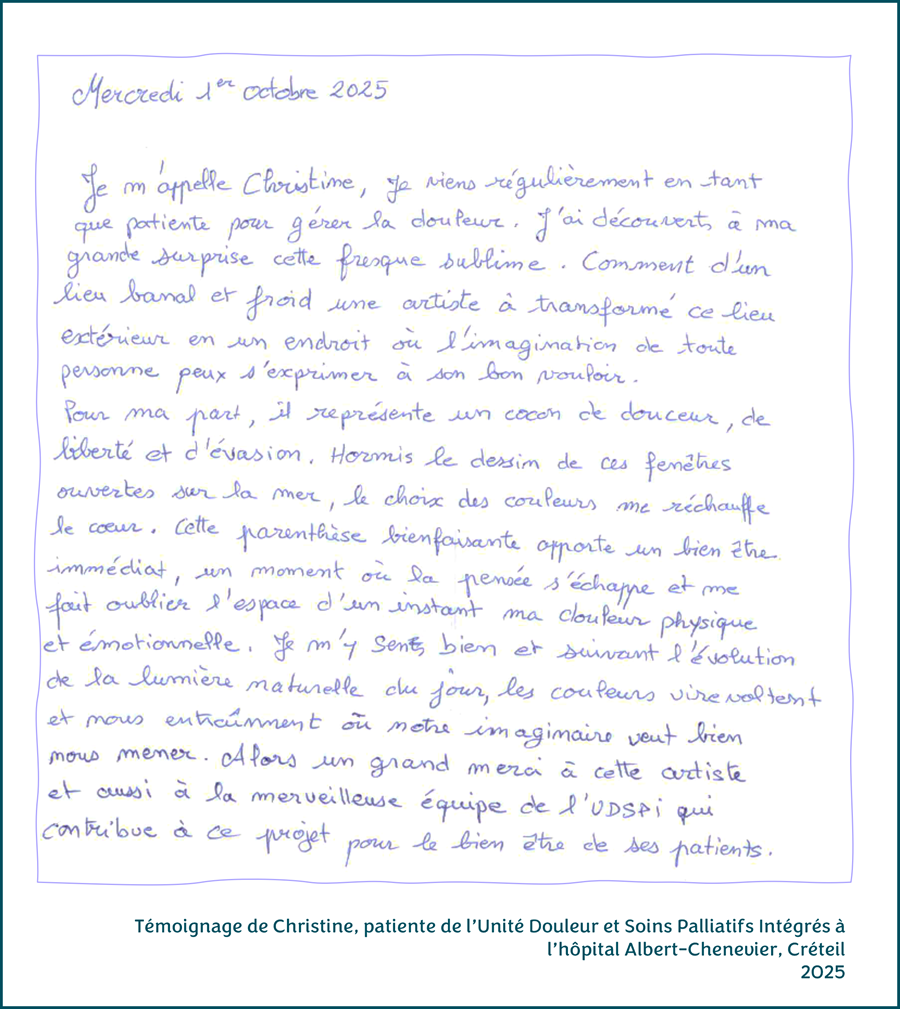 Mercredi 1er octobre 2025
Je m'appelle Christine, je viens régulièrement en tant
que patiente pour gérer la douleur. J'ai découvert, à ma
grande surprise cette fresque sublime. Comment d'un
lieu banal et froid une artiste à transformé ce lieu
extérieur en un endroit où l'imagination de toute
personne peux s'exprimer à son bon vouloir.
Pour ma part, il représente un cocon de douceur, de
liberté et d'évasion. Hormis le dessin de ces fenêtres
ouvertes sur la mer, le choix des couleurs me réchauffe
le cœur. Cette parenthèse bienfaisante apporte un bien être
immédiat, un moment où la pensée s'échappe et me
fait oublier l'espace d'un instant ma douleur physique
et émotionnelle. Je m'y sens bien et suivant l'évolution
de la lumière naturelle du jour, les couleurs virevoltent
et nous entraînnent où notre imaginaire veut bien
nous mener. Alors un grand merci à cette artiste
et aussi à la merveilleuse équipe de l'UDSPi qui
contribue à ce projet pour le bien être de ses patients.
Témoignage de Christine, patiente de l'Unité Douleur et Soins Palliatifs Intégrés à
l'hôpital Albert-Chenevier, Créteil
2025